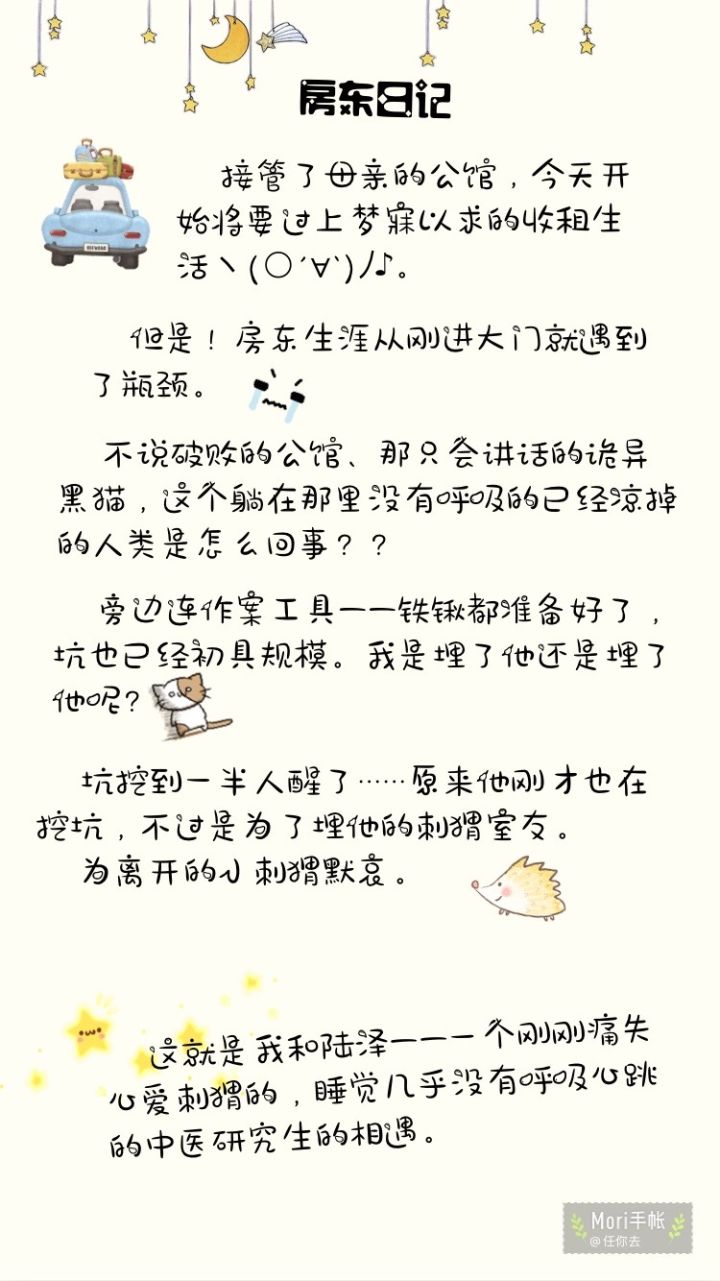 房东日记
接管了母亲的公馆，今天开
始将要过上梦寐以求的收租生
活丶(○´∀`)ﾉ♪。
但是！房东生涯从刚进大门就遇到
了瓶颈。
不说破败的公馆、那只会讲话的诡异
黑猫，这个躺在那里没有呼吸的已经凉掉
的人类是怎么回事？？
旁边连作案工具——铁锹都准备好了，
坑也已经初具规模。我是埋了他还是埋了
他呢？
坑挖到一半人醒了……原来他刚才也在
挖坑，不过是为了埋他的刺猬室友。
为离开的小刺猬默哀。
这就是我和陆泽———个刚刚痛失
心爱刺猬的，睡觉几乎没有呼吸心跳
的中医研究生的相遇。
Mori手帐
@任你去